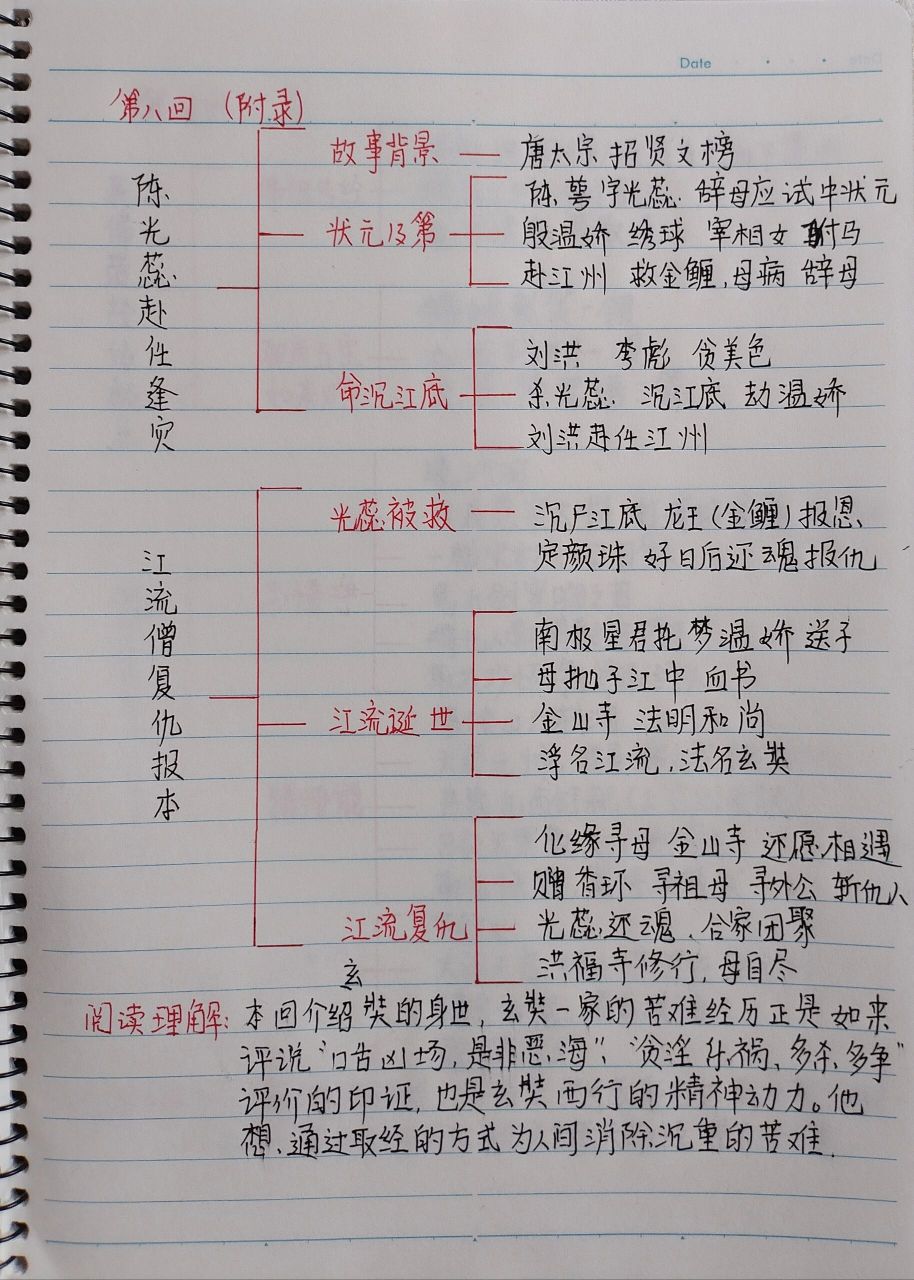 Date
第八回 (附录)
陈光蕊赴任逢灾
故事背景 — 唐太宗 招贤文榜
状元及第
陈萼字光蕊 辞母应试中状元
殷温娇 绣球 宰相女 驸马
赴江州 救金鲤,母病 辞母
命沉江底
刘洪 李彪 贪美色
杀光蕊 沉江底 劫温娇
刘洪赴任江州
江流僧复仇报本
光蕊被救 — 沉尸江底 龙王(金鲤)报恩
定颜珠 好日后还魂报仇
江流诞世
南极星君托梦温娇 送子
母抛子江中 血书
金山寺 法明和尚
浮名江流,法名玄奘
江流复仇
化缘寻母 金山寺 还愿相遇
赠香环 寻祖母 寻外公 斩仇人
光蕊还魂、合家团聚
洪福寺修行,母自尽
玄
阅读理解:本回介绍奘的身世,玄奘一家的苦难经历正是如来
评说“口舌凶场,是非恶海”、“贪淫乐祸、多杀多争”
评价的印证,也是玄奘西行的精神动力。他
想通过取经的方式为人间消除沉重的苦难.